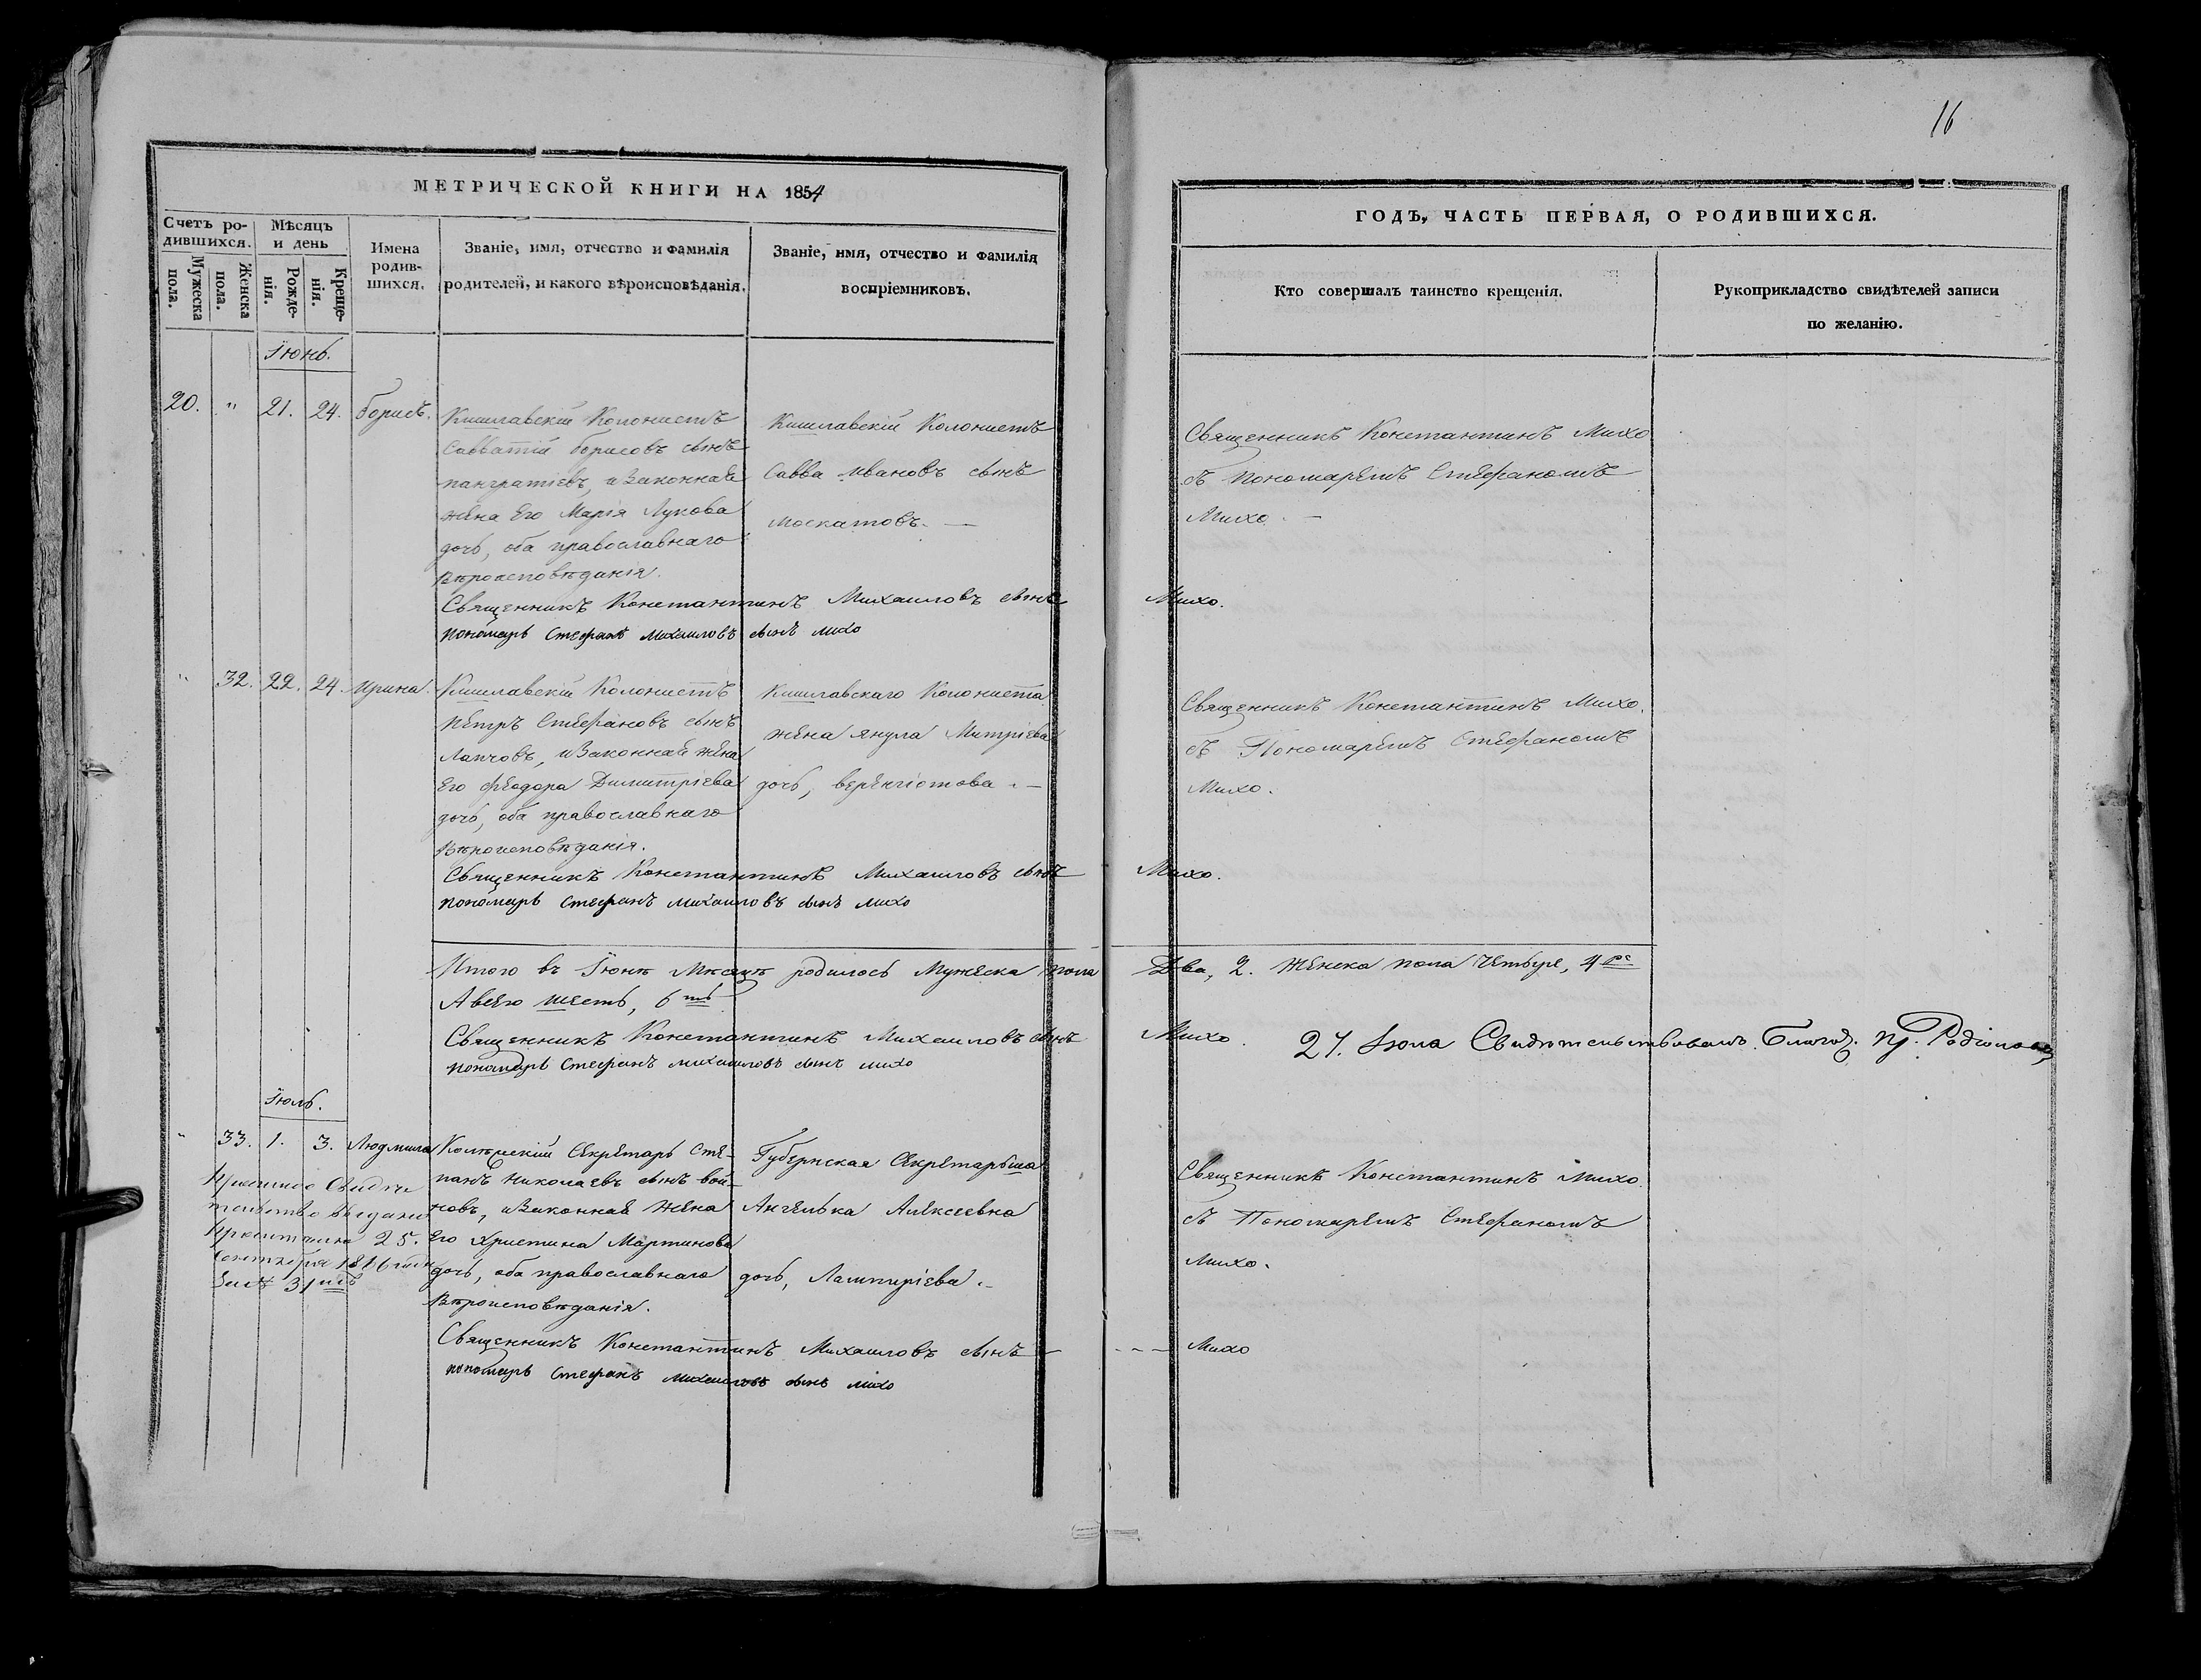 МЕТРИЧЕСКОЙ КНИГИ НА 1854
Счетъ ро-
дившихся.
Мужеска
пола.
Женска
пола.
Мѣсяцъ
и день
Рожде-
нія.
Креще-
нія.
Имена
родив-
шихся.
Званіе, имя, отчество и фамилія
родителей, и какого вѣроисповѣданія.
Званіе, имя, отчество и фамилія
воспріемниковъ.
Іюнь.
20. " 21. 24. Борисъ.
Кишлавскій Колонистъ
Савватій Борисовъ сынъ
пангратіевъ, и Законная
жена Его Марія Лукова
дочь, оба православнаго
вѣроисповѣданія.
Кишлавскій Колонистъ
Савва Ивановъ сынъ
москатовъ. —
Священникъ Константинъ Михаиловъ сынъ
пономарь Стефанъ Михаиловъ сынъ михо
" 32. 22. 24. Ирина.
Кишлавскій Колонистъ
Петръ Стефановъ сынъ
Лапчовъ, и Законная жена
Его Феодора Димитріева
дочь, оба православнаго
вѣроисповѣданія.
Кишлавскаго Колониста
жена янула Митріева
дочь,
Священникъ Константинъ Михаиловъ сынъ
пономарь Стефанъ михаиловъ сынъ михо
Итого въ Іюнѣ Мѣсяцѣ родилось Мужеска пола
А всего шесть, 6ть
Священникъ Константинъ Михаиловъ сынъ
пономарь Стефанъ михаиловъ сынъ михо
Іюль.
" 33. 1. 3. Людмила
Колѣжскій Секретарь Сте-
панъ Николаевъ сынъ вой-
новъ, и Законная жена
Его Христина Мартинова
дочь, оба православнаго
вѣроисповѣданія.
Губернская Секретарьша
Ангелька Алексеевна
дочь, Лампиріева. —
25.
сентября
Священникъ Константинъ Михаиловъ сынъ —
пономарь Стефанъ михаиловъ сынъ михо
16
ГОДЪ, ЧАСТЬ ПЕРВАЯ, О РОДИВШИХСЯ.
Кто совершалъ таинство крещенія.
Рукоприкладство свидѣтелей записи
по желанію.
Священникъ Константинъ Михо
съ Пономаремъ Стефаномъ
Михо. —
Михо.
Священникъ Константинъ Михо.
съ Пономаремъ Стефаномъ
Михо.
Михо.
Два, 2. Женска пола Четыре, 4ре
Михо.
Священникъ Константинъ Михо.
съ Пономаремъ Стефаномъ
Михо.
- - - Михо